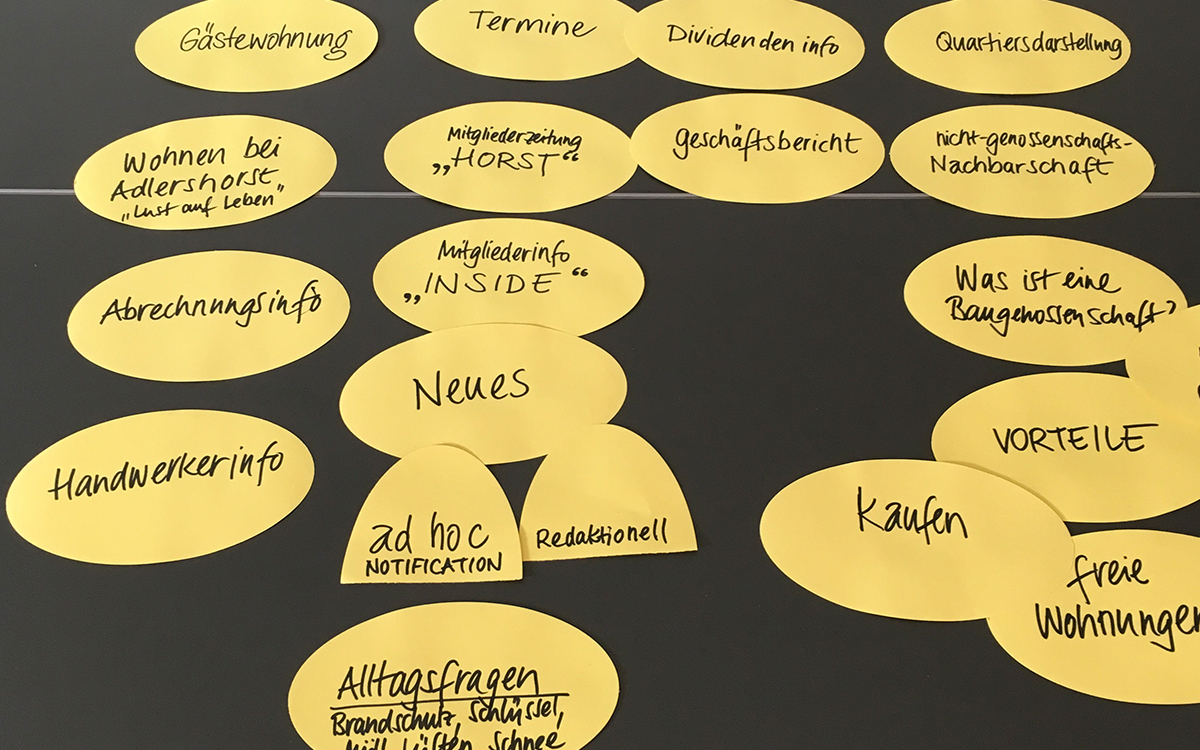 Gästewohnung
Termine
Dividenden info
Quartiersdarstellung
Wohnen bei
Adlershorst
„Lust auf Leben"
Mitgliederzeitung
„HORST“
geschäftsbericht
nicht-genossenschafts-
Nachbarschaft
Abrechnungsinfo
Mitgliederinfo
„INSIDE“
Was ist eine
Baugenossenschaft?
Neues
VORTEILE
Handwerkerinfo
ad hoc
NOTIFICATION
Redaktionell
Kaufen
freie
Wohnungen
Alltagsfragen
Brandschutz, Schlüssel,
Müll, Lüften, Schnee